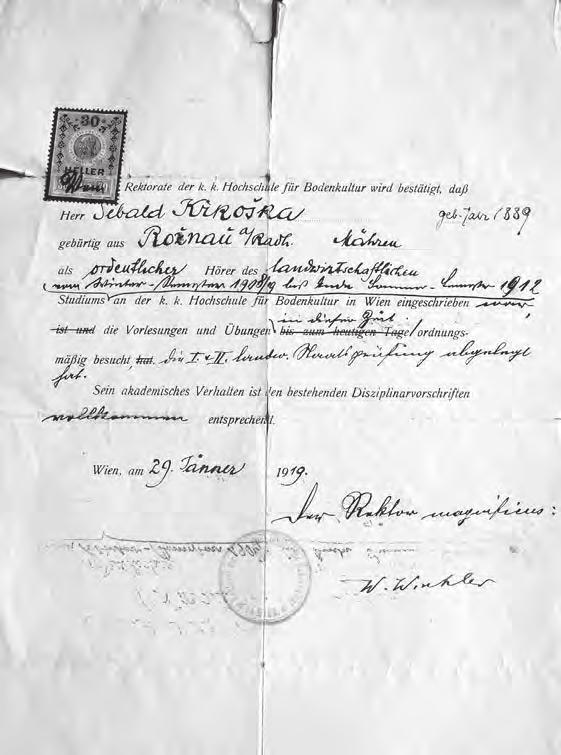 30
HELLER
Wien
Rektorate der k. k. Hochschule für Bodenkultur wird bestätigt, daß
Herr Sebald Krkoška geb. Jahr 1889
gebürtig aus Rožnau a/Radh. Mähren
als ordentlicher Hörer des landwirtschaftlichen
vom Winter-Semester 1908/9 bis Ende Sommer-Semester 1912
Studiums an der k. k. Hochschule für Bodenkultur in Wien eingeschrieben war,
in dieser Zeit
ist und die Vorlesungen und Übungen bis zum heutigen Tage ordnungs-
mäßig besucht, hat. die I. & II. landw. Staatsprüfung abgelegt
hat.
Sein akademisches Verhalten ist den bestehenden Disziplinarvorschriften
vollkommen entsprechend.
Wien, am 29. Jänner 1919.
Der Rektor magnificus:
W. Winkler